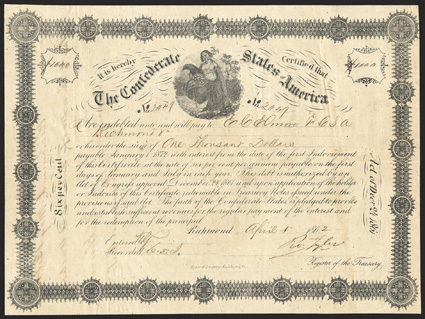 It is hereby Certified that
$1000 $1000
The Confederate States of America
No. No.
are indebted unto and will pay to
Richmond Va
or his order the sum of One Thousand Dollars
payable January 1 1872 with interest from the date of the first Indorsement
of this Certificate, at the rate of six per cent per annum payable on the first
days of January and July in each year. This debt is authorized by an
Act of Congress approved December 24 1861 and upon application of the holders
or Indorsee of this Certificate exchangeable Treasury Notes fund under the
provisions of said Act. The faith of the Confederate States is pledged to provide
and establish sufficient revenues for the regular payment of the interest and
for the redemption of the principal.
Richmond April 1862
Entered
Recorded
Register of the Treasury.
Six per Cent
Act of Dec. 24, 1861